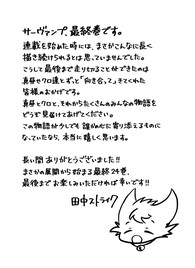 サーヴァンプ、最終巻です。
連載を始めた時には、まさかこんなに長く
描き続けられるとは思っていませんでした。
こうして最後まで走り切ることができたのは
真昼やクロ達とずっと"向き合って"きてくれた
皆様のおかげです。
真昼とクロと、それからたくさんのみんなの物語を
どうぞ見届けてあげてください。
この物語が少しでも誰かの心に寄り添えるものに
なっていたなら、本当に嬉しく思います。
長い間ありがとうございました!!
まさかの展開から始まる最終22巻、
最後までお楽しみいただければ幸いです!!
田中ストライク